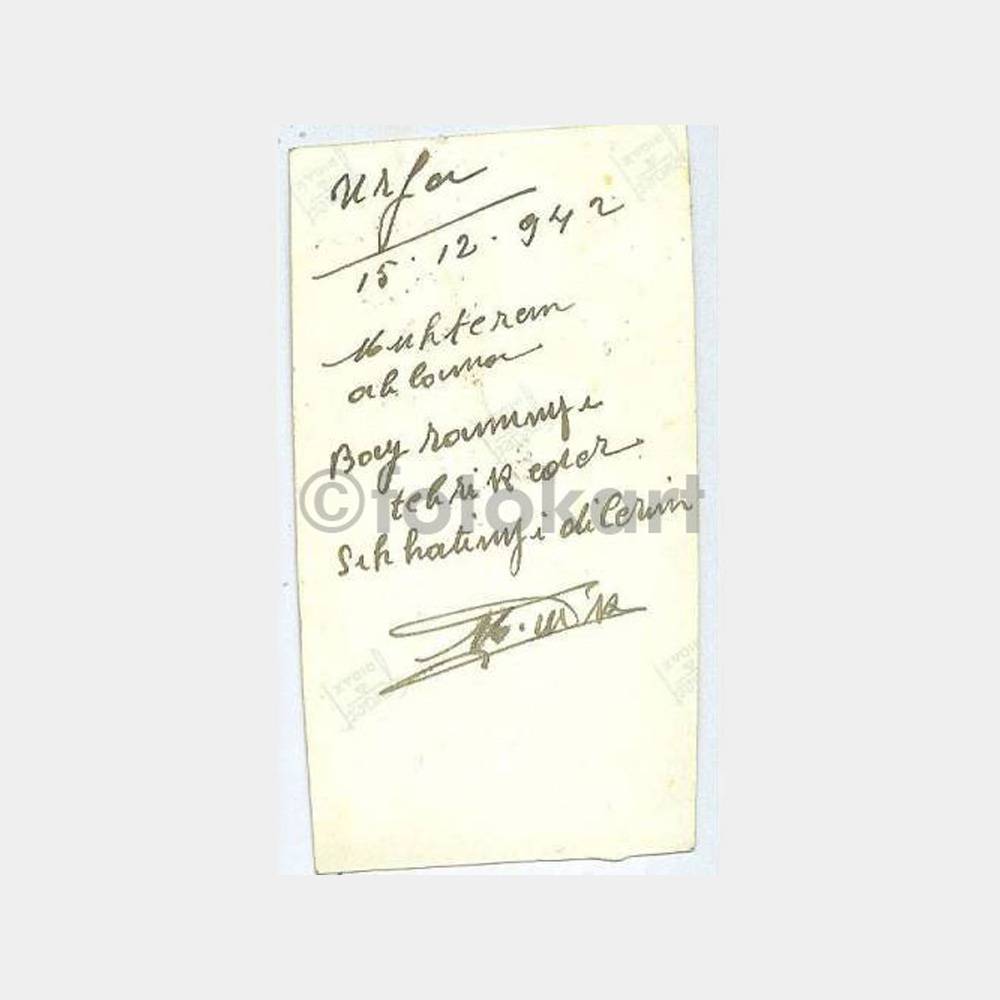 Urfa
15.12.942
Muhterem
ablama
Bayramınyi
tebrik eder
Sıhhatinyi dilerim
©fotokart